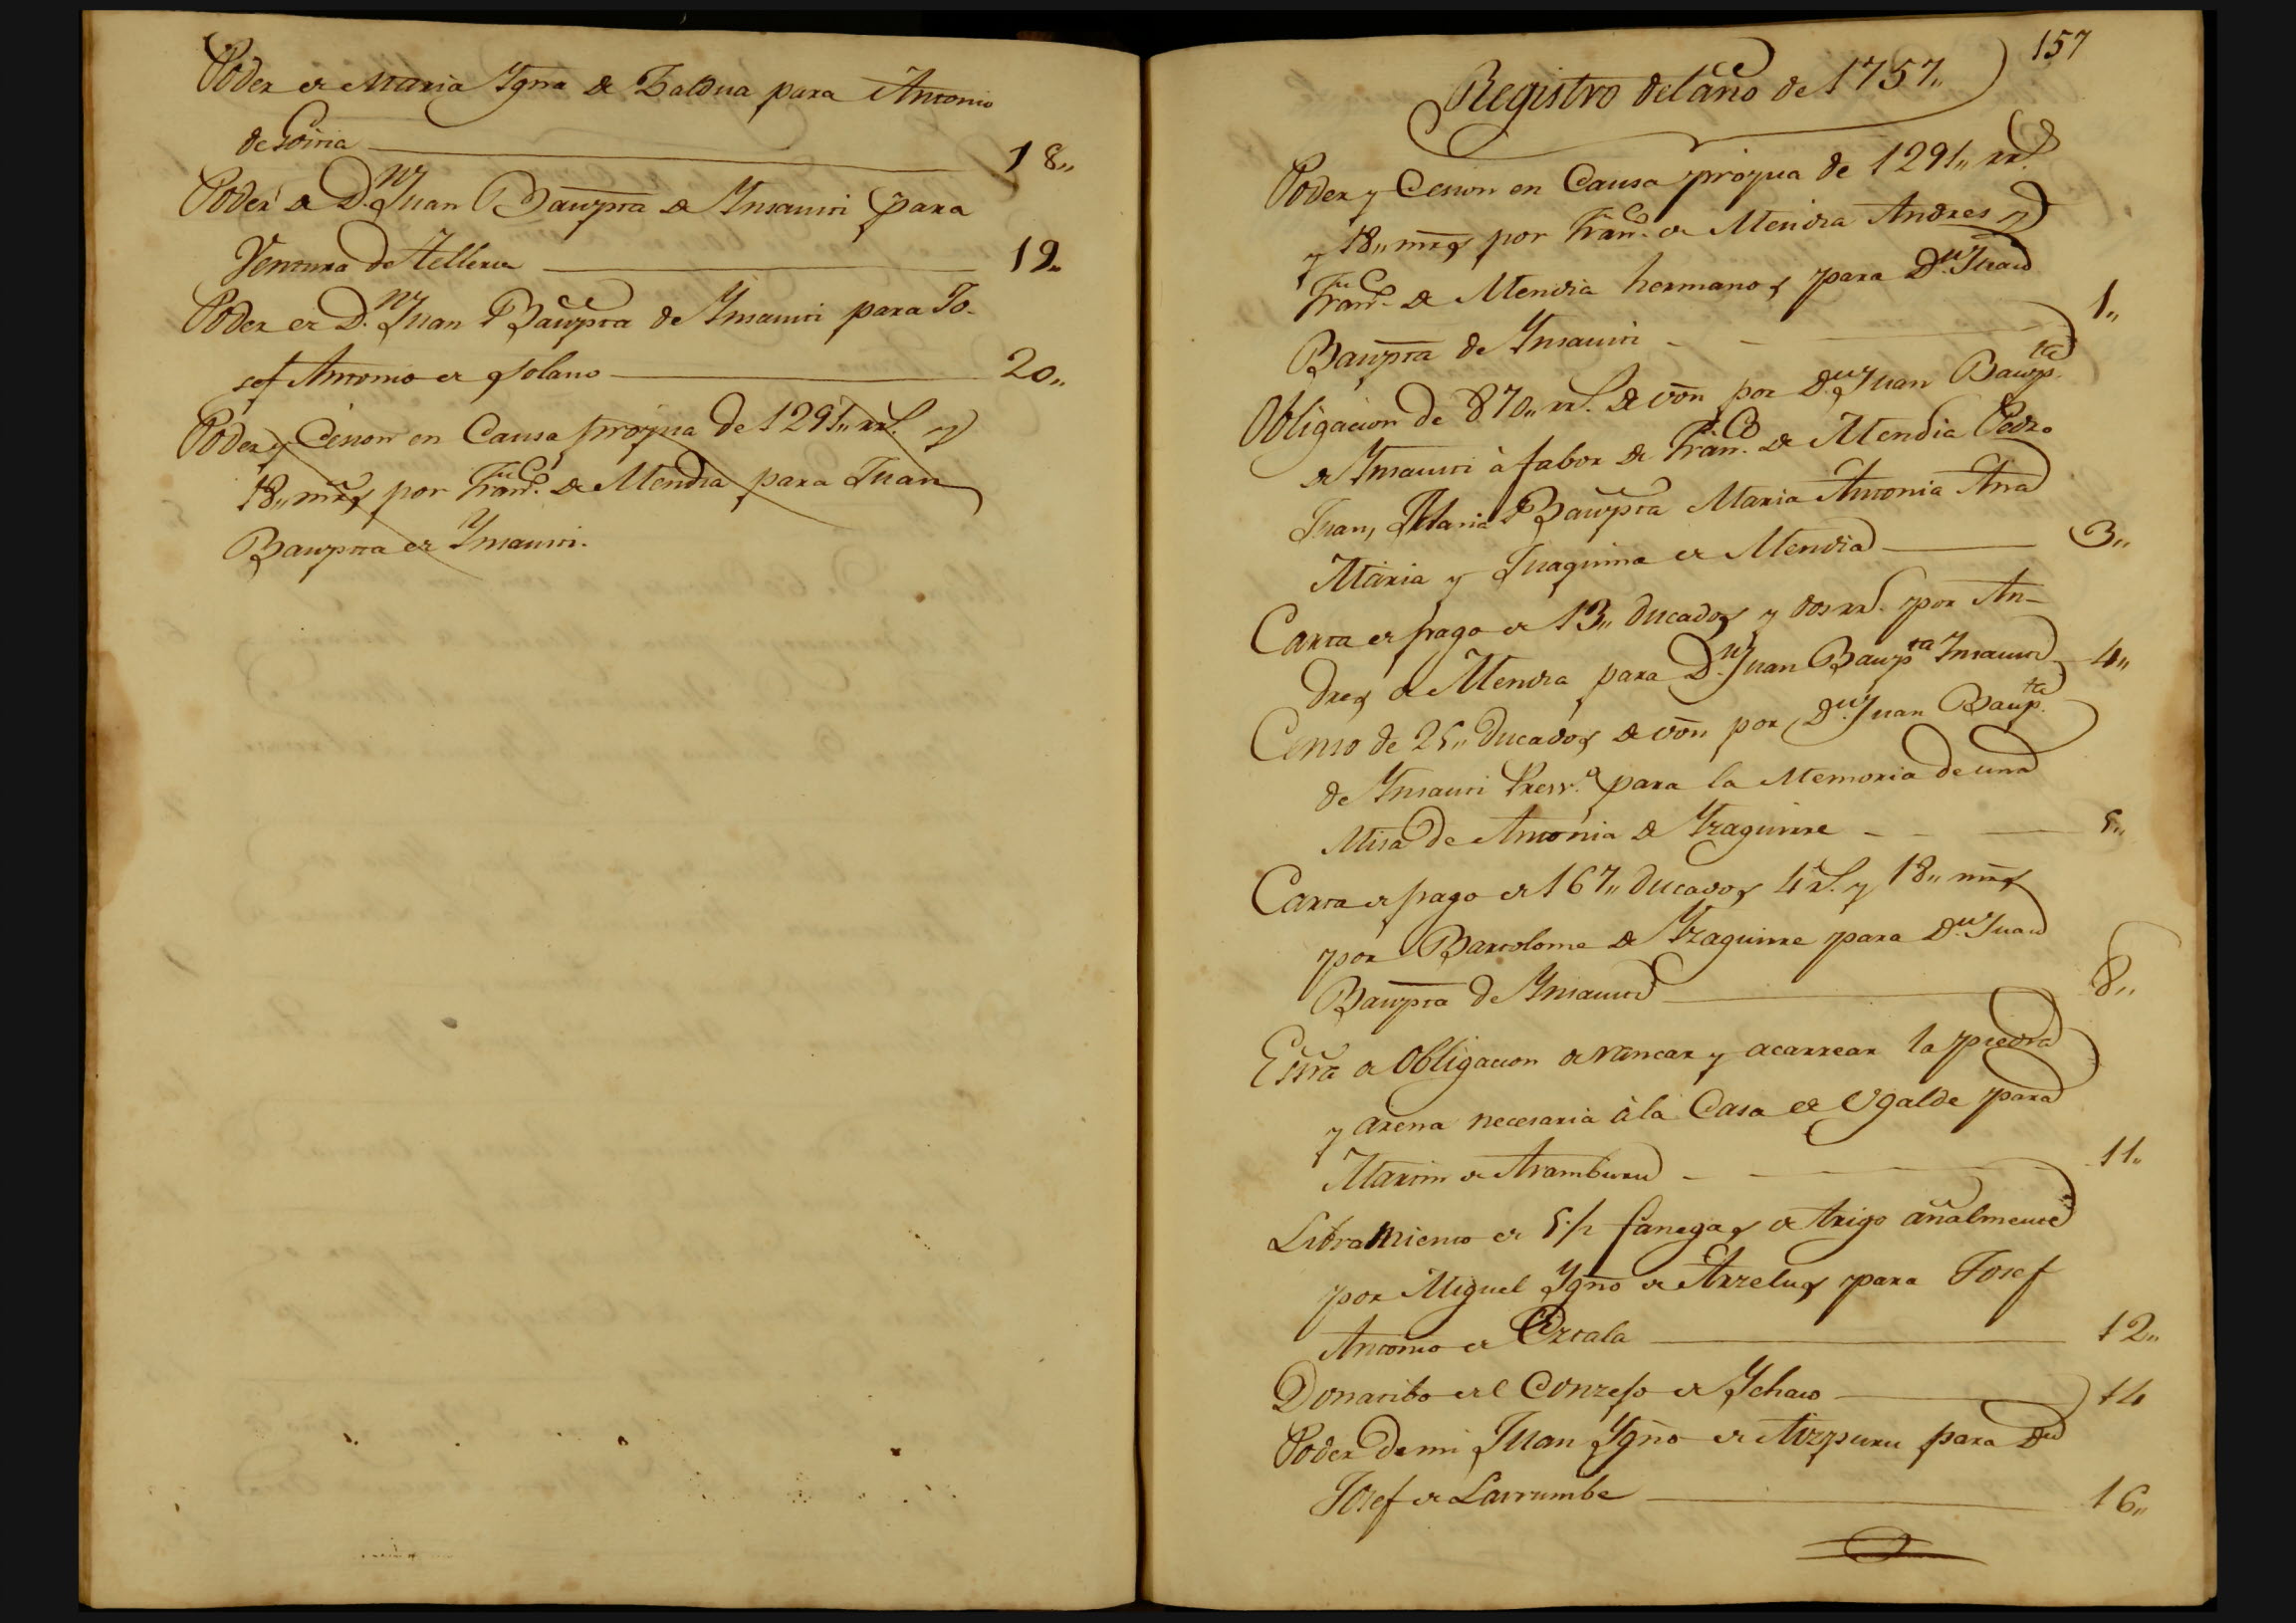 Poder de Maria Ygna de Zaldua para Antonio
de Goiria 18,,
Poder de D.n Juan Bauptta de Ynsausti para
Ventura de Telleria 19,,
Poder de D.n Juan Bauptta de Ynsausti para Jo-
sef Antonio de Solano 20,,
Poder y Cesion en Causa propia de 1291,, rr.s y
18,, mrs por Fran.co de Mendia para Juan
Bauptta de Ynsausti.
157
Registro del año de 1757,,
Poder y Cesion en Causa propia de 1291,, rr.s
y 18,, mrs por Fran.co de Mendia Andres y
Fran.co de Mendia hermanos para D.n Juan
Bauptta de Ynsausti 1,,
Obligacion de 870,, rr.s de von por D.n Juan Baup.ta
de Ynsausti à fabor de Fran.co de Mendia Pedro
Juan, Maria Bauptta Maria Antonia Ana
Maria y Juaquina de Mendia 3,,
Carta de pago de 13,, ducados y dos rr.s por An-
dres de Mendia para D.n Juan Baup.ta Ynsausti 4,,
Censo de 25,, ducados de von por D.n Juan Baup.ta
de Ynsausti Presv.o para la Memoria de una
Misa de Antonia de Yzaguirre 5,,
Carta de pago de 167,, ducados 4 rr.s y 18,, mrs
por Bartolome de Yzaguirre para D.n Juan
Bauptta de Ynsausti 8,,
Essra de Obligacion de rancar y acarrear la piedra
y arena necesaria à la Casa de Ugalde para
Martin de Aramburu 11,,
Libramiento de 5 1/2 fanegas de trigo añalmente
por Miguel Ygno de Arzelus para Josef
Antonio de Oztala 12,,
Donatibo de el Conzejo de Ychaso 14
Poder de mi Juan Ygno de Aizpuru para D.n
Josef de Larrumbe 16,,